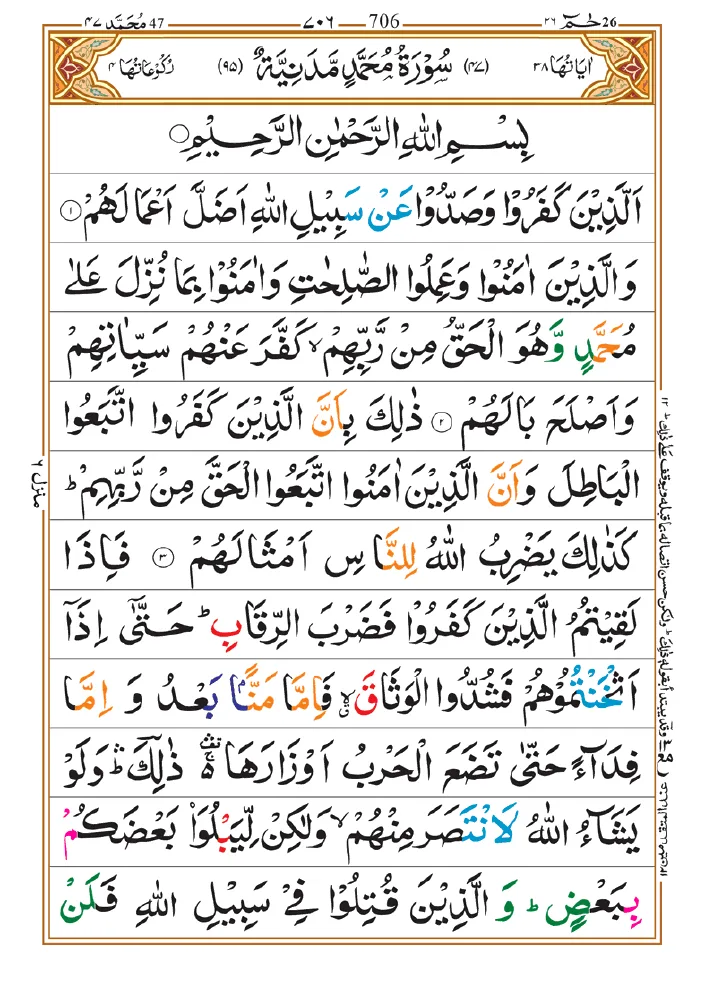 ٤٧ مُحَمَّد 47 ٧٠٦ 706 ٢٦ حٰمٓ 26
اٰيَاتُهَا ٣٨ (٤٧) سُوْرَةُ مُحَمَّدٍ مَّدَنِيَّةٌ (٩٥) رُكُوْعَاتُهَا ٤
بِسْمِ اللهِ الرَّحْمٰنِ الرَّحِيْمِ ○
اَلَّذِيْنَ كَفَرُوْا وَصَدُّوْا عَنْ سَبِيْلِ اللهِ اَضَلَّ اَعْمَالَهُمْ ۝١
وَالَّذِيْنَ اٰمَنُوْا وَعَمِلُوا الصّٰلِحٰتِ وَاٰمَنُوْا بِمَا نُزِّلَ عَلٰى
مُحَمَّدٍ وَّهُوَ الْحَقُّ مِنْ رَّبِّهِمْ ۙ كَفَّرَ عَنْهُمْ سَيِّاٰتِهِمْ
وَاَصْلَحَ بَالَهُمْ ۝٢ ذٰلِكَ بِاَنَّ الَّذِيْنَ كَفَرُوا اتَّبَعُوا
الْبَاطِلَ وَاَنَّ الَّذِيْنَ اٰمَنُوا اتَّبَعُوا الْحَقَّ مِنْ رَّبِّهِمْ ؕ
كَذٰلِكَ يَضْرِبُ اللهُ لِلنَّاسِ اَمْثَالَهُمْ ۝٣ فَاِذَا
لَقِيْتُمُ الَّذِيْنَ كَفَرُوْا فَضَرْبَ الرِّقَابِ ؕ حَتّٰٓى اِذَآ
اَثْخَنْتُمُوْهُمْ فَشُدُّوا الْوَثَاقَ ۙ فَاِمَّا مَنًّۢا بَعْدُ وَ اِمَّا
فِدَآءً حَتّٰى تَضَعَ الْحَرْبُ اَوْزَارَهَا ۛ۬ ذٰلِكَ ۛؕ وَلَوْ
يَشَآءُ اللهُ لَانْتَصَرَ مِنْهُمْ ۙ وَلٰكِنْ لِّيَبْلُوَا۟ بَعْضَكُمْ
بِبَعْضٍ ؕ وَ الَّذِيْنَ قُتِلُوْا فِيْ سَبِيْلِ اللهِ فَلَنْ
منزل ٦